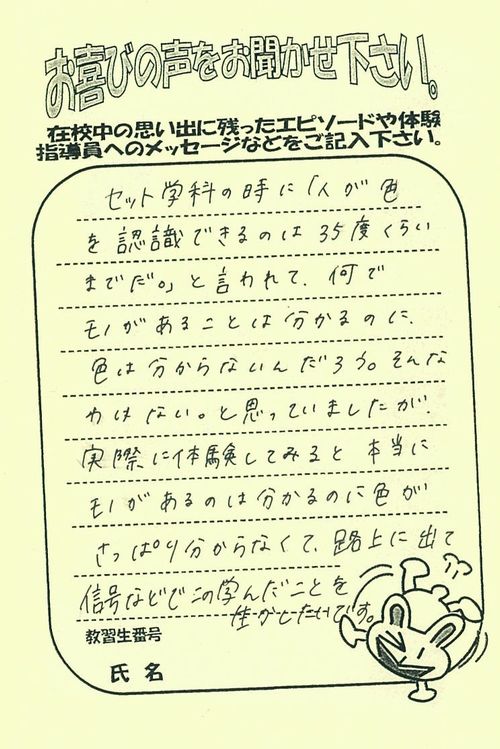 お喜びの声をお聞かせ下さい。
在校中の思い出に残ったエピソードや体験
指導員へのメッセージなどをご記入下さい。
セット学科の時に「人が色
を認識できるのは35度くらい
までだ。」と言われて、何で
モノがあることは分かるのに、
色は分からないんだろう。そんな
わけない。と思っていましたが、
実際に体験してみると本当に
モノがあるのは分かるのに色が
さっぱり分からなくて、路上に出て
信号などでこの学んだことを
生かしたいです。
教習生番号
氏名